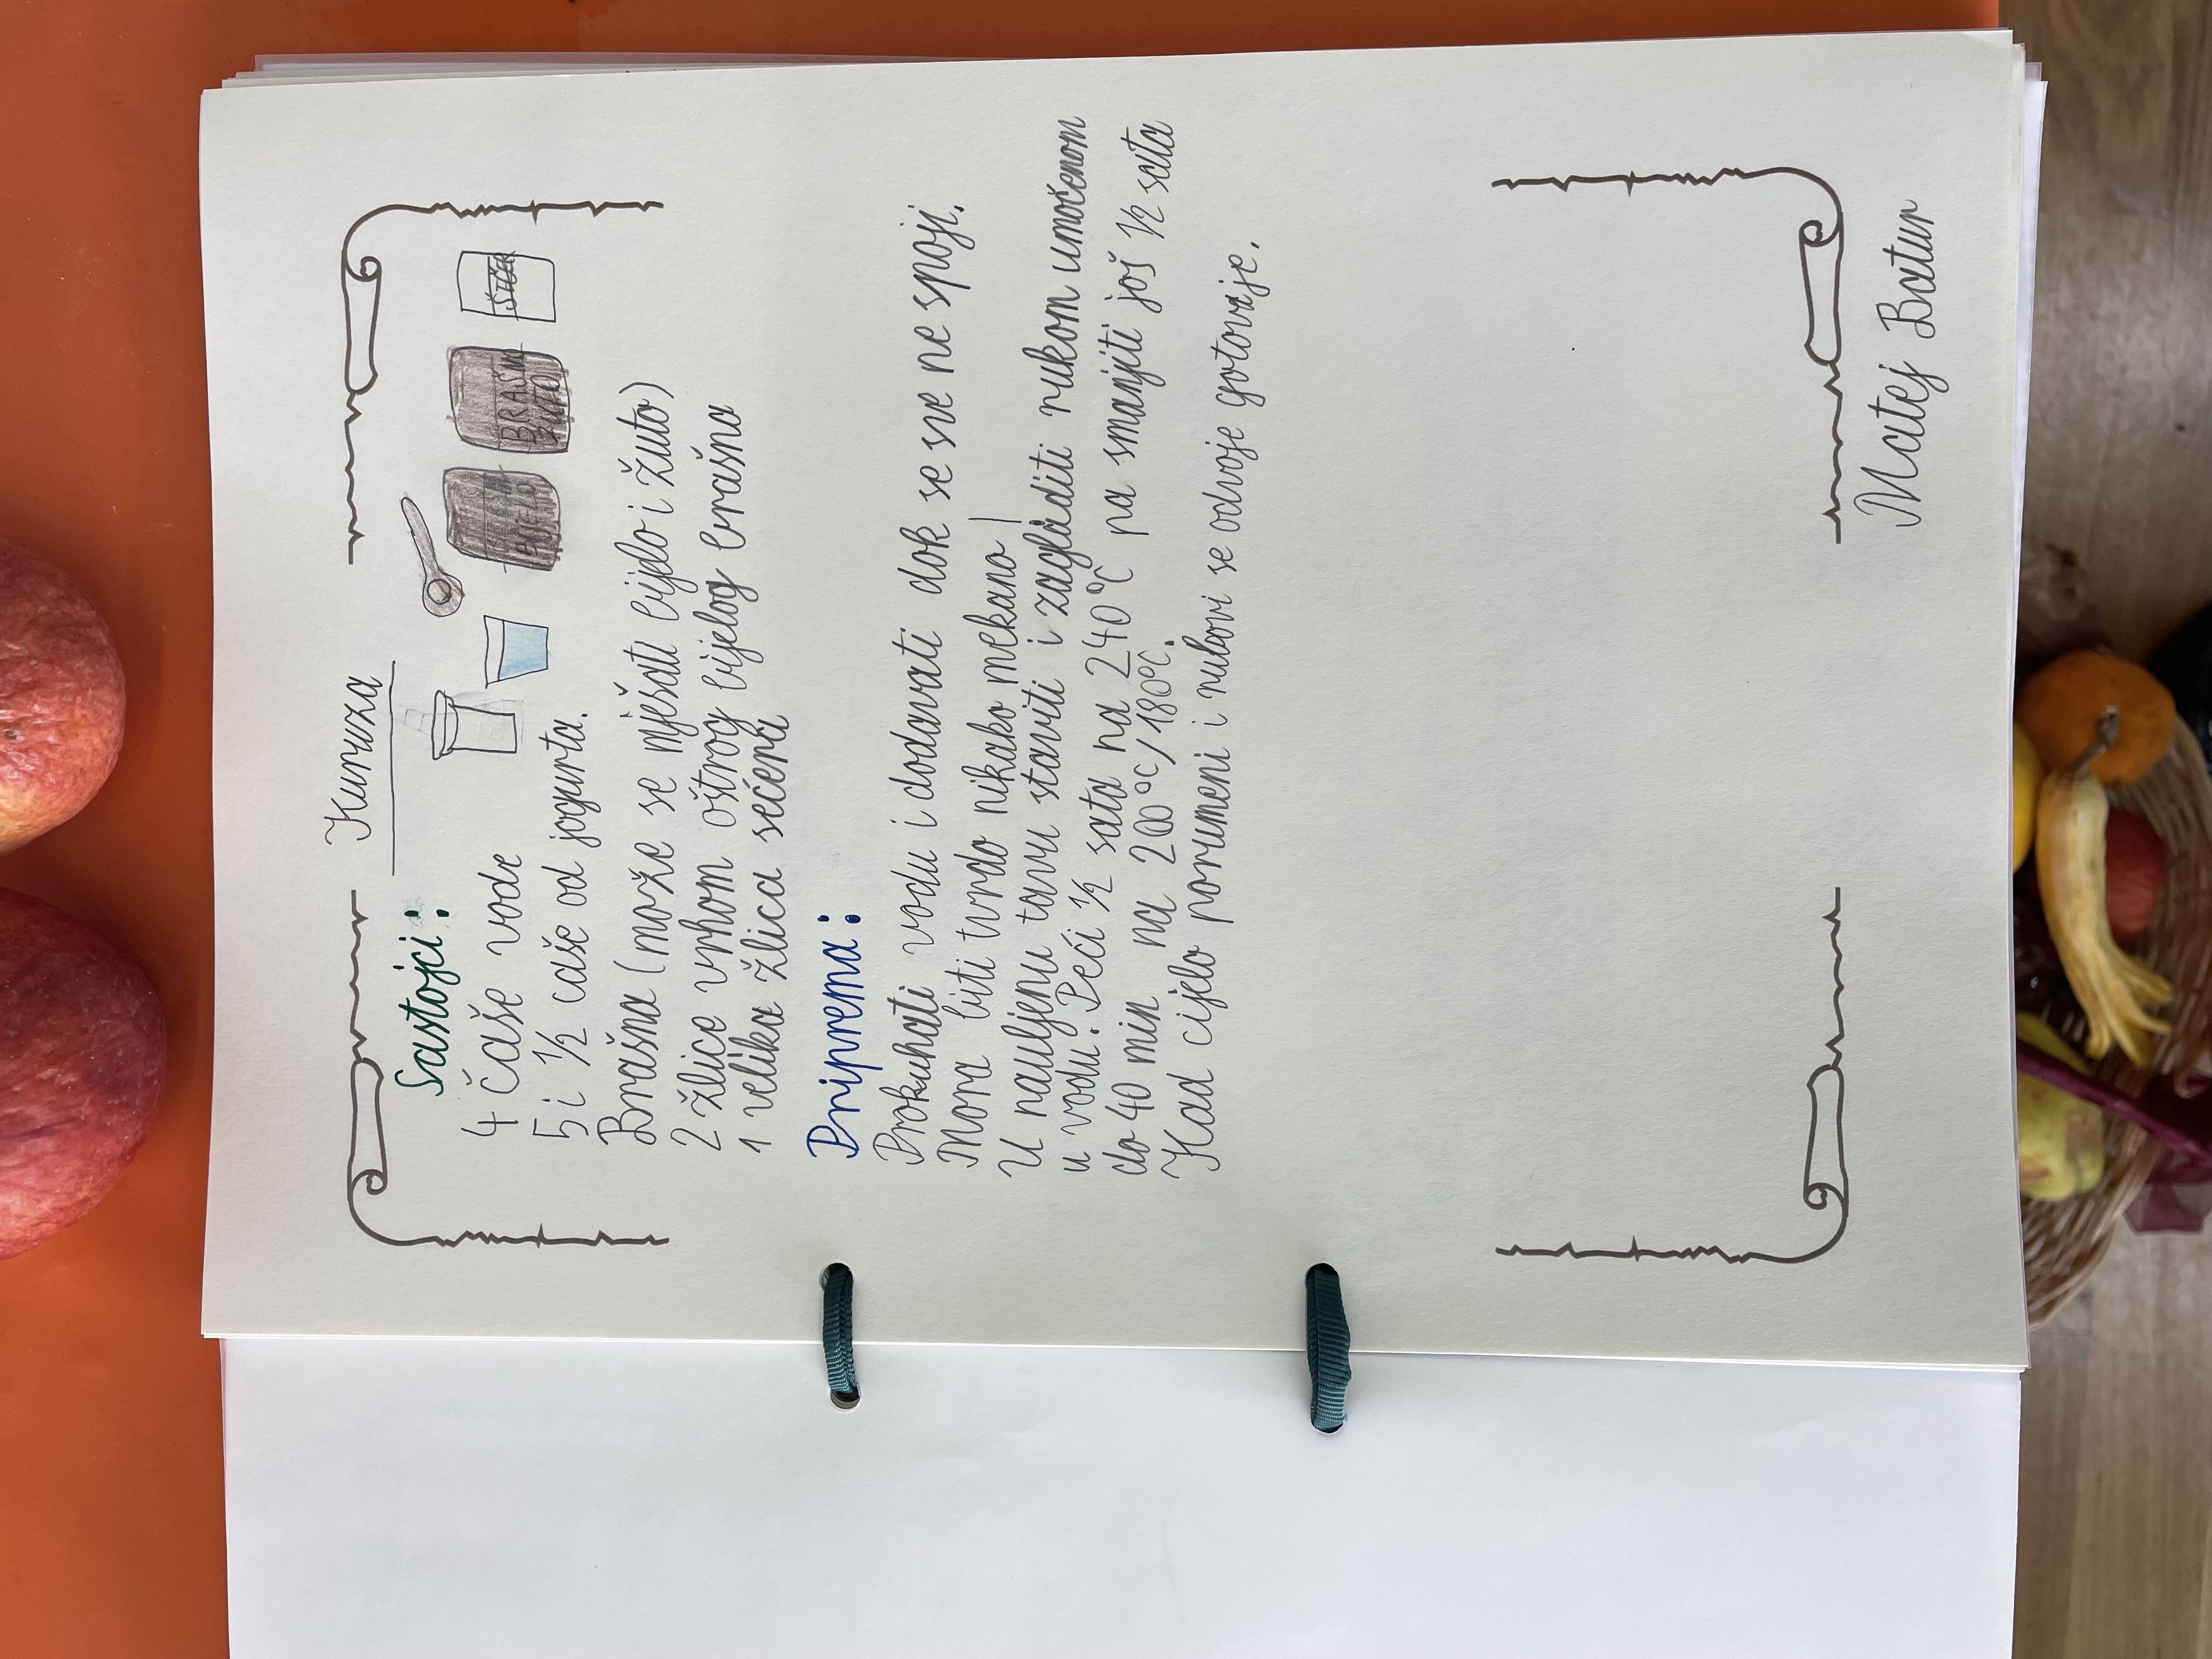 Kuruza
Sastojci:
4 čaše vode
5 i 1/2 čaše od jogurta.
Brašna (može se mješati bijelo i žuto)
2 žlice vrhom oštrog bijelog brašna
1 velika žlica sećera
BRAŠNO
ŽUTO
BIJELO
Priprema:
Prokuhati vodu i dodavati dok se sve ne spoji.
Mora biti tvrdo nikako mekano!
U nauljenu tavu staviti i zagladiti rukom umočenom
u vodu. Peći 1/2 sata na 240°C pa smanjiti još 1/2 sata
do 40 min na 200°C/180°C.
Kad cijelo porumeni i rubovi se odvoje gotova je.
Matej Batur